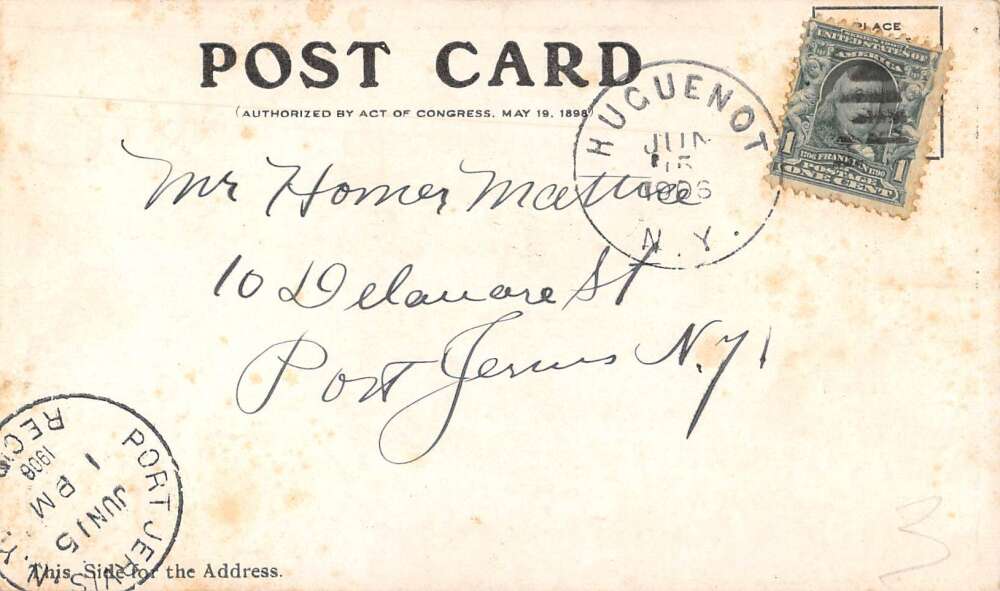 PLACE
POST CARD
(AUTHORIZED BY ACT OF CONGRESS, MAY 19, 1898)
HUGUENOT
JUN
15
1906
N.Y.
UNITED STATES OF
AMERICA
1 1
1706 FRANKLIN 1790
POSTAGE
ONE CENT
Mr Homer Mattice
10 Delaware St
Port Jervis N.Y.
PORT JERVIS N.Y.
JUN 15
1 PM
1906
REC'D
This Side for the Address.
3